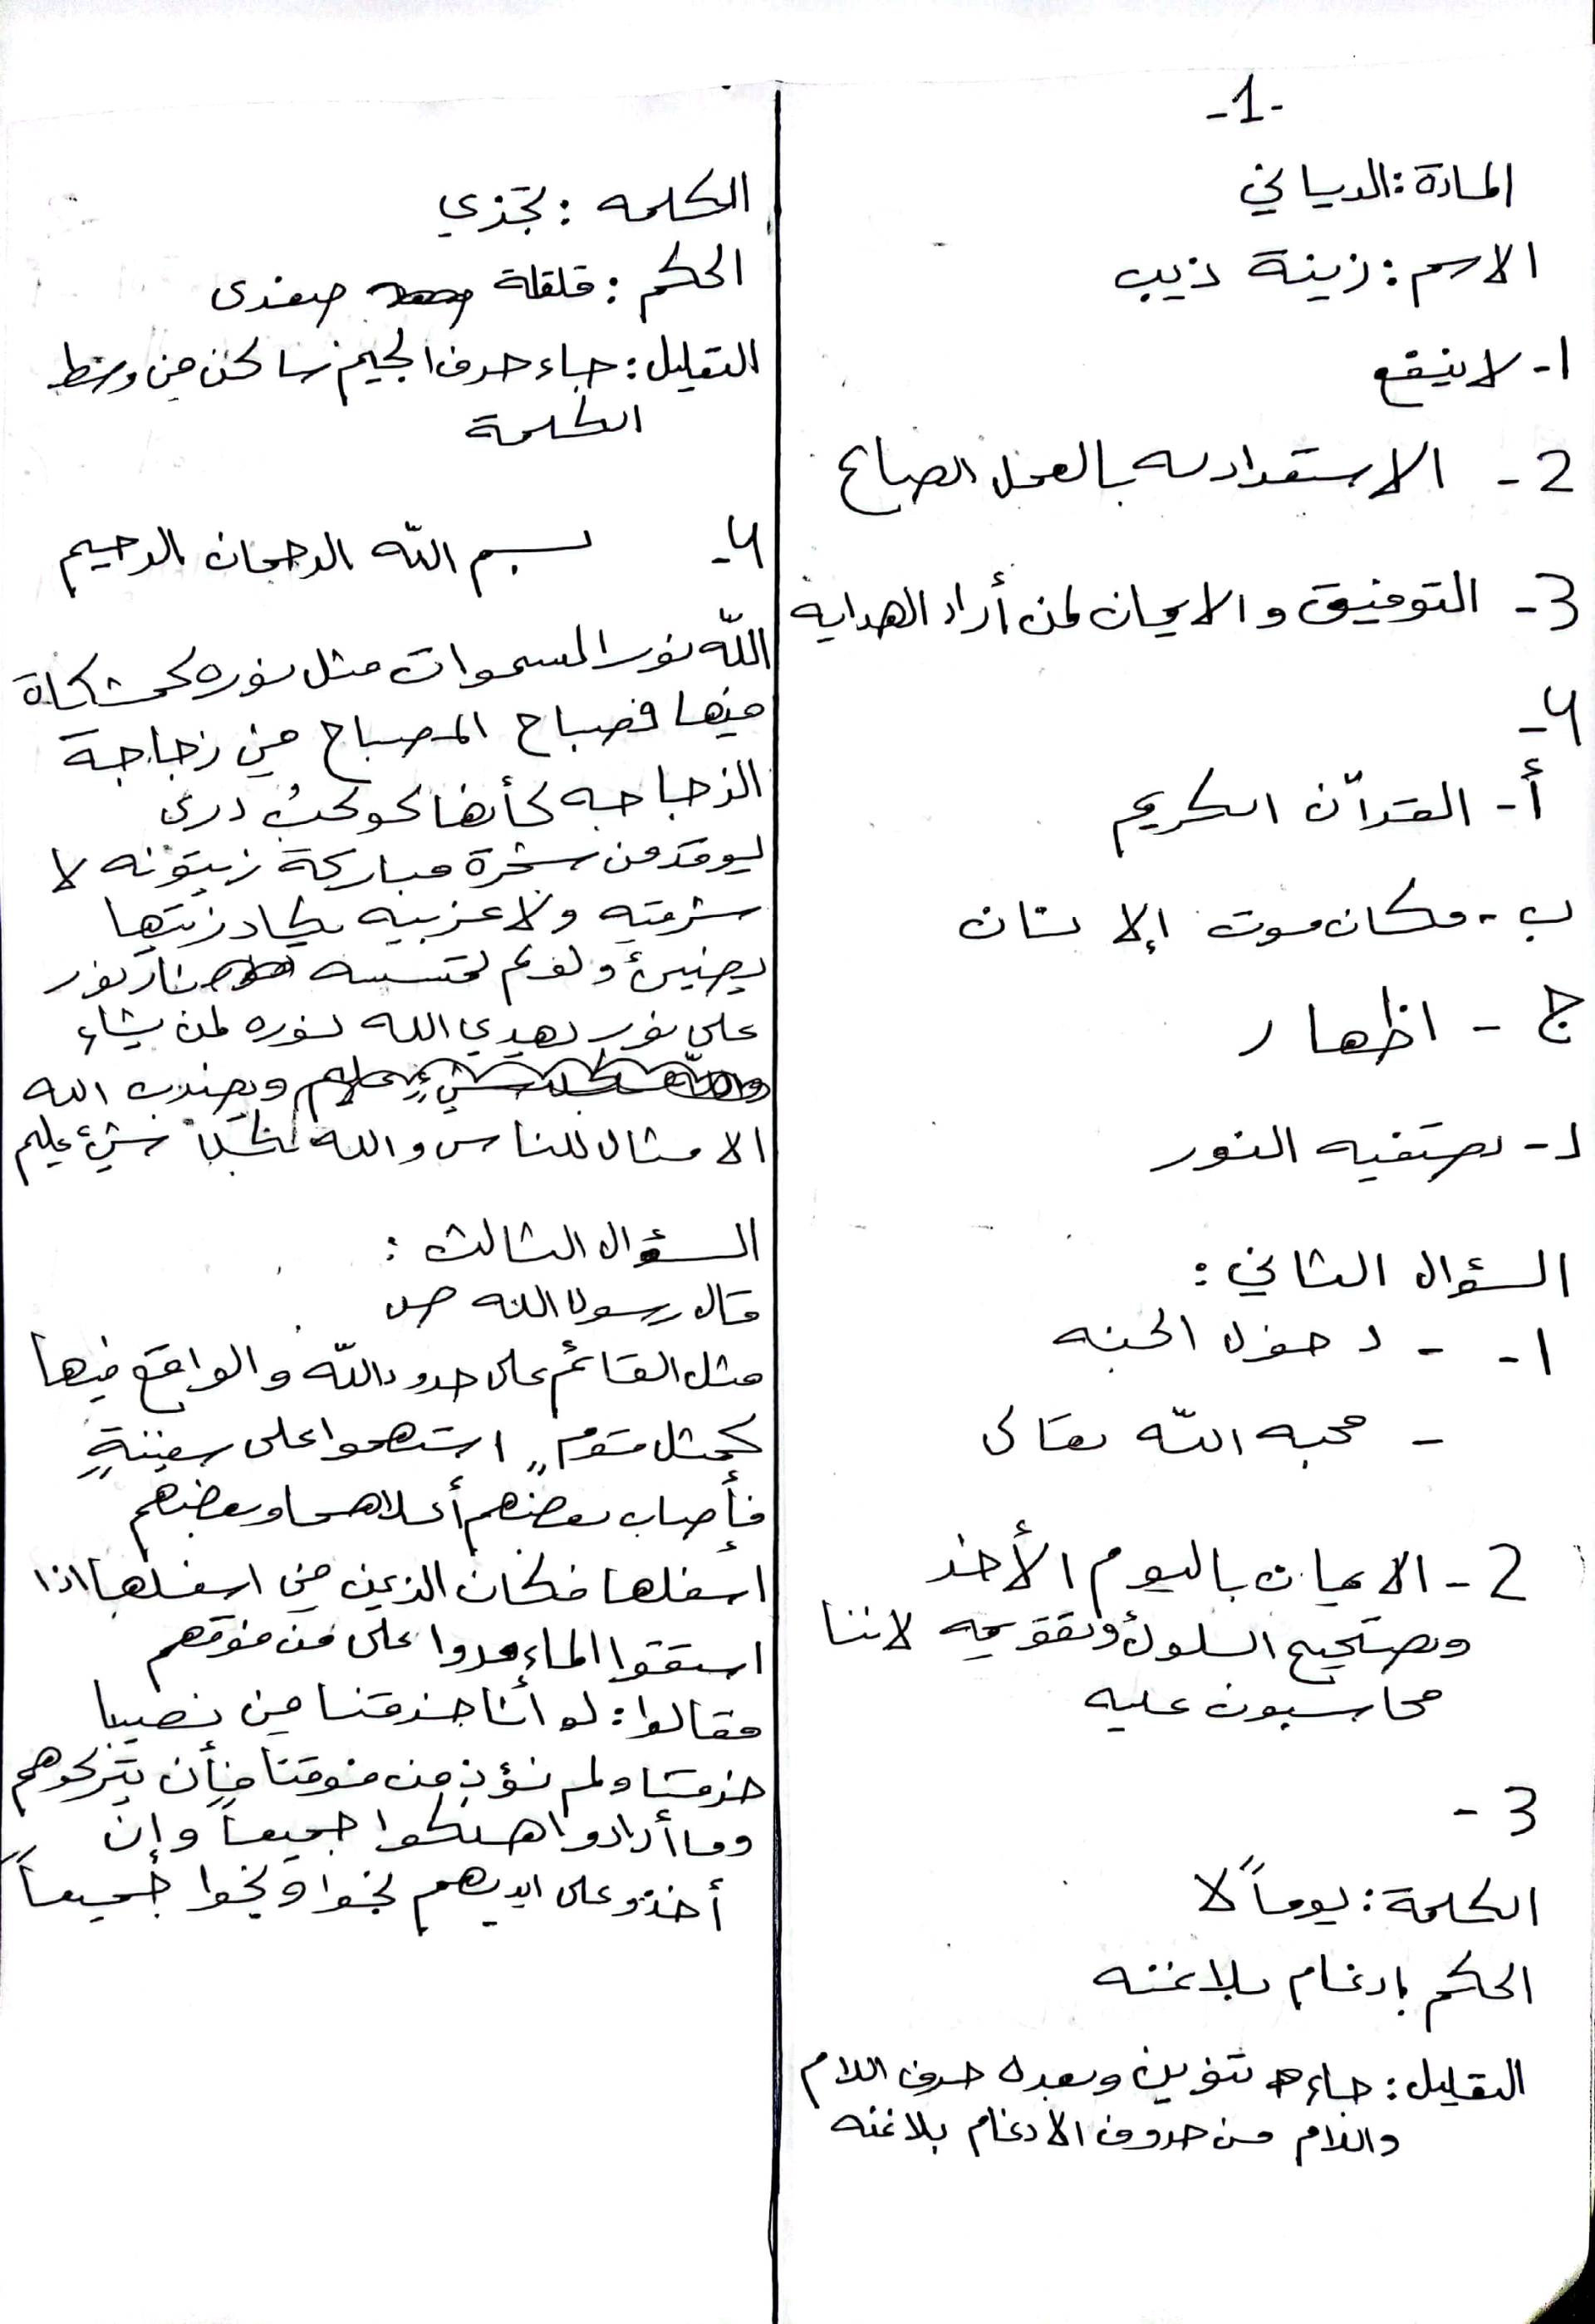 -1-
المادة: الدياني
الاسم: زينة ذيب
1- لا ينفع
2- الاستعداد له بالعمل الصالح
3- التوفيق والايمان لمن أراد الهدايه
4-
أ- القرآن الكريم
ب- مكان موت الانسان
ج- اظهار
د- تصتفيه النور
السؤال الثاني:
1- - دخول الجنه
- محبه الله تعالى
2- الايمان باليوم الأخر
وتصحيح السلوك وتقويمه لاننا
محاسبون عليه
3-
الكلمة: يوماً لا
الحكم: ادغام بلا غنه
التعليل: جاء تنوين وبعده حرف اللام
واللام من حروف الادغام بلا غنه
الكلمه: تجزي
الحكم: قلقلة صغرى
التعليل: جاء حرف الجيم ساكن في وسط
الكلمة
4- بسم الله الرحمان الرحيم
الله نور السموات مثل نوره كمشكاة
فيها مصباح المصباح في زجاجة
الزجاجه كأنها كوكب دري
يوقد من شجرة مباركة زيتونه لا
شرقيه ولا غربيه يكاد زيتها
يضيئ ولو لم تمسسه نار نور
على نور يهدي الله لنوره لمن يشاء
ويضرب الله
الامثال للناس والله بكل شيء عليم
السؤال الثالث:
قال رسول الله ص
مثل القائم على حدود الله والواقع فيها
كمثل قوم استهموا على سفينةٍ
فأصاب بعضهم أعلاها وبعضهم
اسفلها فكان الذين في اسفلها اذا
استقوا الماء مروا على من فوقهم
فقالوا: لو أنا خرقنا في نصيبا
خرقنا ولم نؤذ من فوقنا فإن يتركوهم
وما أرادوا هلكوا جميعاً وإن
أخذو على ايديهم نجوا ونجوا جميعاً